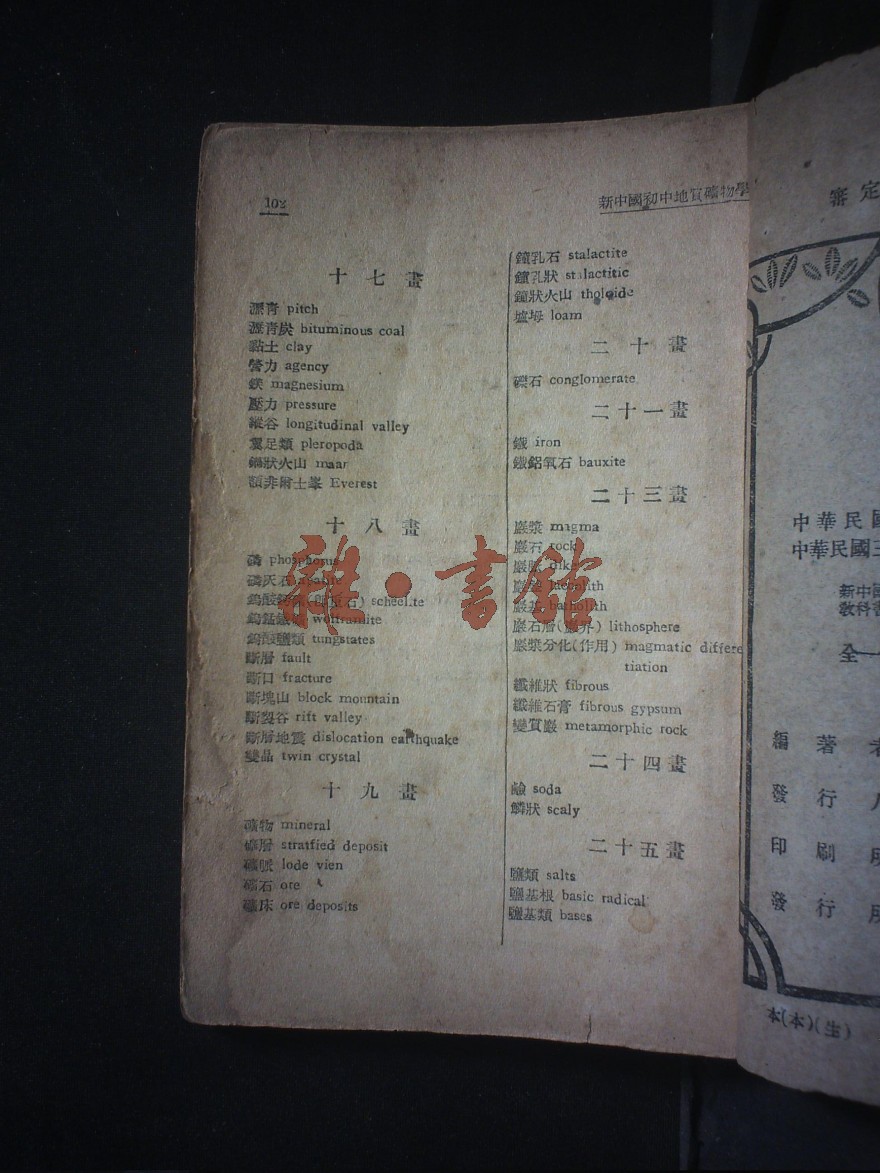 102
新中國初中地質礦物學
十七畫
瀝青 pitch
瀝青炭 bituminous coal
黏土 clay
營力 agency
鎂 magnesium
壓力 pressure
縱谷 longitudinal valley
翼足類 pleropoda
鍋狀火山 maar
額非爾士峯 Everest
十八畫
磷 phosphorus
磷灰石 apatite
scheelite
wolframite
鎢酸鹽類 tungstates
斷層 fault
斷口 fracture
斷塊山 block mountain
斷裂谷 rift valley
斷層地震 dislocation earthquake
雙晶 twin crystal
十九畫
礦物 mineral
礦層 stratfied deposit
礦脈 lode vien
礦石 ore
礦床 ore deposits
鐘乳石 stalactite
鐘乳狀 stalactitic
鐘狀火山 tholoide
壚坶 loam
二十畫
礫石 conglomerate
二十一畫
鐵 iron
鐵鋁氧石 bauxite
二十三畫
巖漿 magma
巖石 rock
巖脈 dike
巖盤 lacolith
巖基 batholith
巖石層(巖界) lithosphere
巖漿分化(作用) magmatic differe
tiation
纖維狀 fibrous
纖維石膏 fibrous gypsum
變質巖 metamorphic rock
二十四畫
鹼 soda
鱗狀 scaly
二十五畫
鹽類 salts
鹽基根 basic radical
鹽基類 bases
雜·書館
審定
中華民國
中華民國三
新中國
教科書
全一
編著者
發行人
印刷所
發行所
本(本)(生)